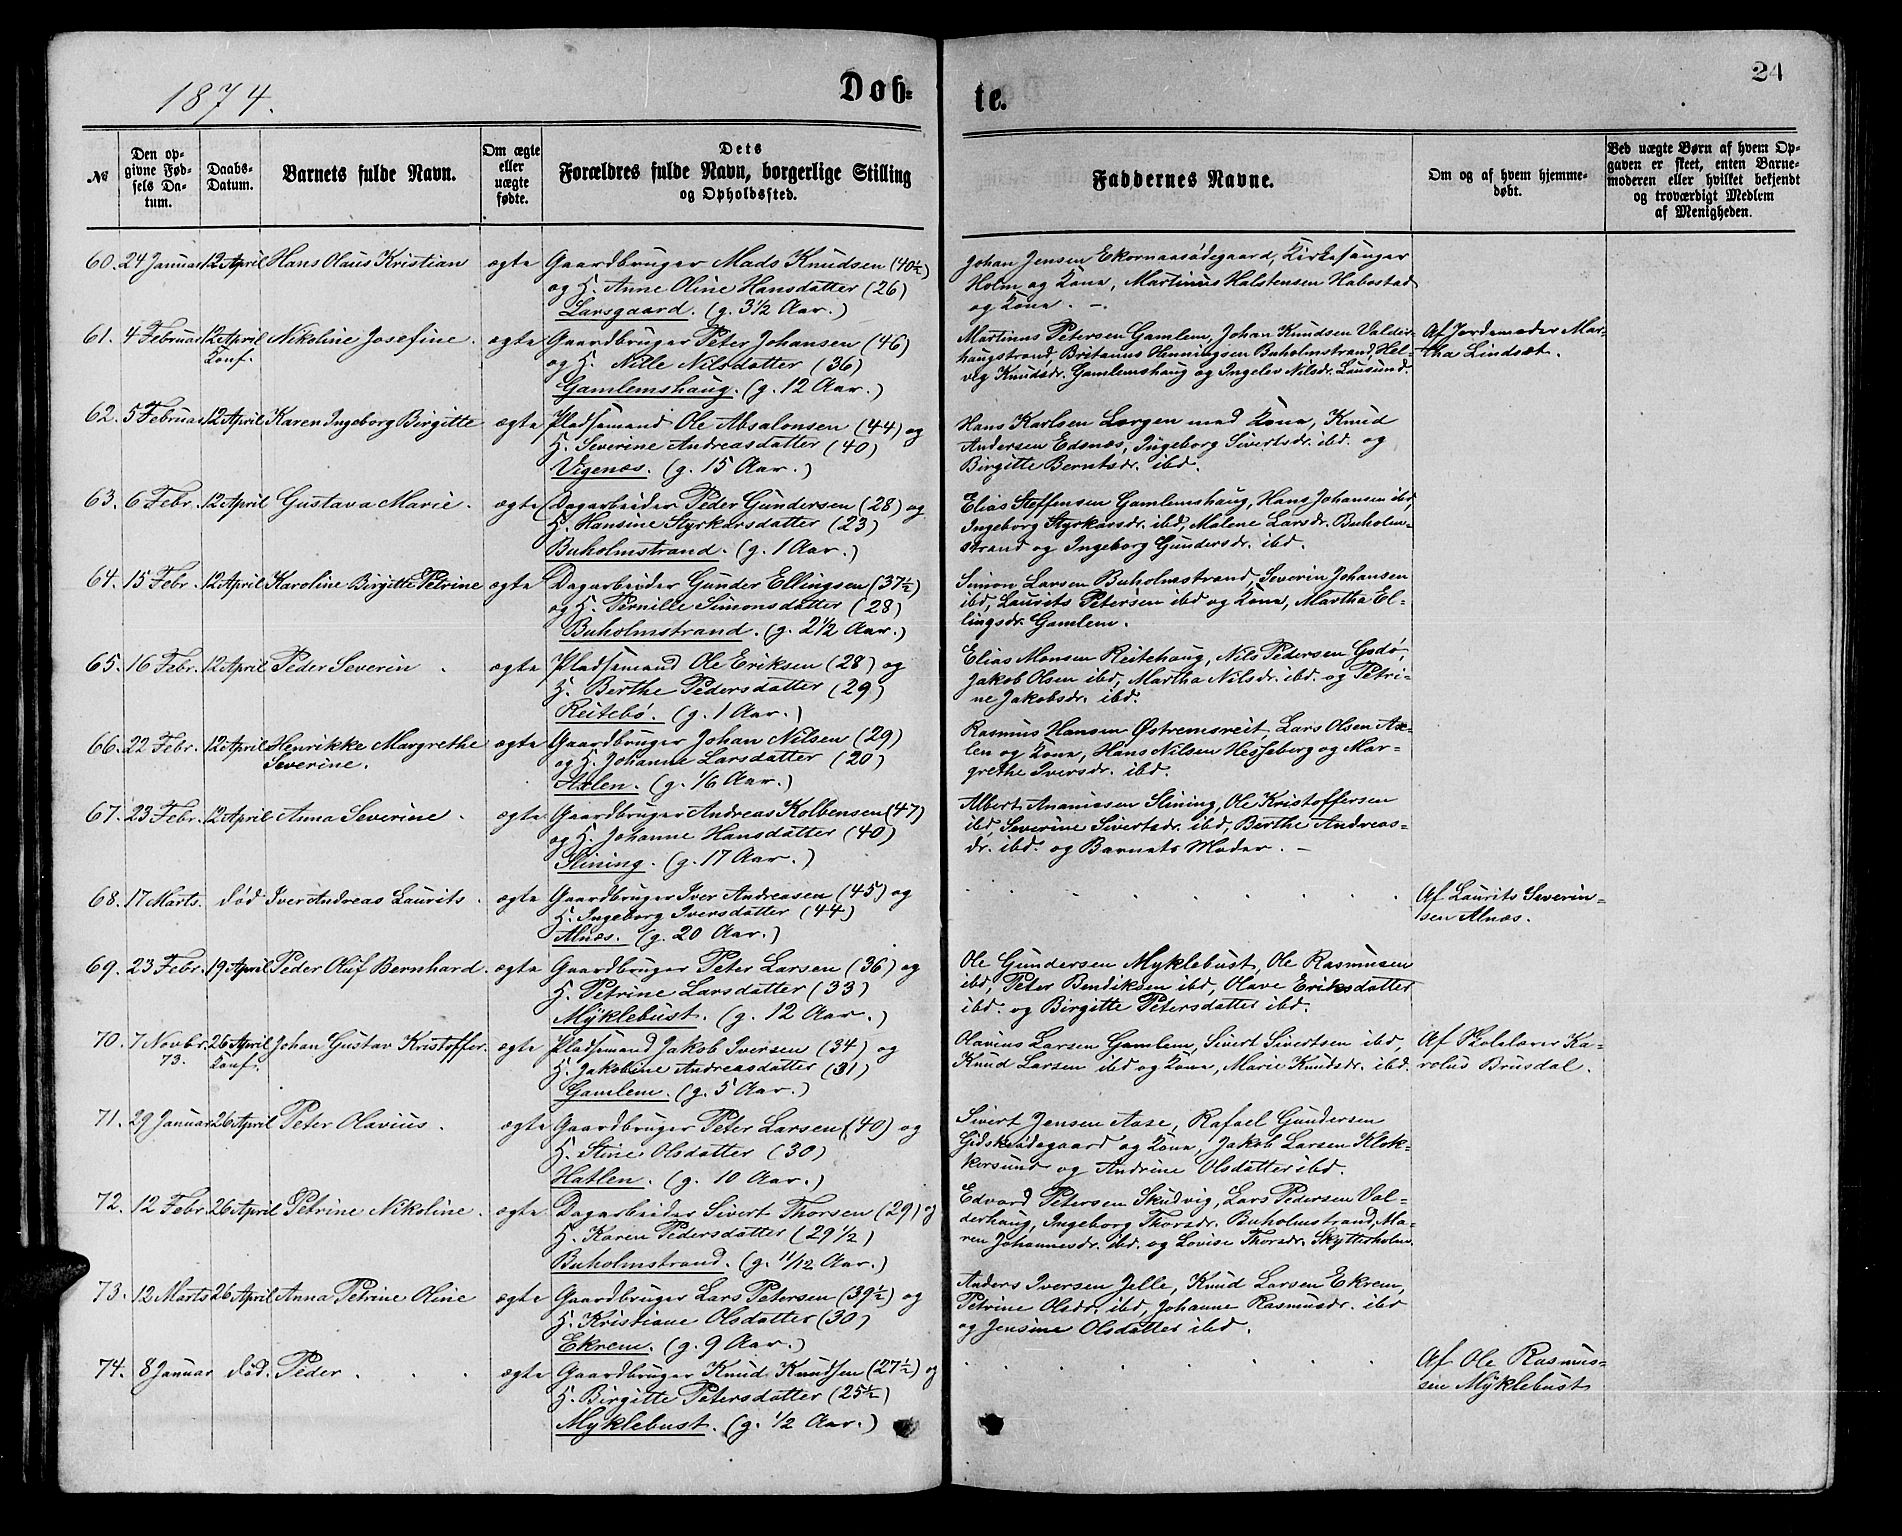 1874.
Døb-
te.
24
№
Den op-
givne Fød-
sels Da-
tum.
Daabs-
Datum.
Barnets fulde Navn.
Om ægte
eller
uægte
fødte.
Dets
Forældres fulde Navn, borgerlige Stilling
og Opholdssted.
Faddernes Navne.
Om og af hvem hjemme-
døbt.
Ved uægte Børn af hvem Op-
gaven er skeet, enten Barne-
moderen eller hvilket bekjendt
og troværdigt Medlem
af Menigheden.
60. 24 Januar 12 April Hans Olaus Kristian ægte Gaardbruger Mads Knudsen (40½)
og H. Anne Oline Hansdatter (26)
Larsgaard. (g. 3½ Aar.)
Johan Jensen Ekornaasødegaard, Kirkesanger
Holm og Kona, Martinus Halstensen Habostad
og Kona. –
61. 4 Februar 12 April Nikoline Josefine. ægte Gaardbruger Peter Johansen (46)
Konf.
og H. Nille Nilsdatter (36)
Gamlemshaug. (g. 12 Aar.)
Martinus Petersen Gamlem, Johan Knudsen Valder-
haugstrand, Britanus Henningsen Buholmstrand, Hel-
vig Knudsdr. Gamlemshaug og Ingelev Nilsdr. Lausund.
Af Jordemoder Mar-
tha Lindsæt.
62. 5 Februar 12 April Karen Ingeborg Birgitte ægte Pladsemand Ole Absalonsen (44) og
H. Severine Andreasdatter (40)
Vigenæs. (g. 15 Aar.)
Hans Karlsen Lorgen med Kona, Knud
Andersen Edsnæs, Ingeborg Sivertsdr. ibd. og
Birgitte Berntsdr. ibd.
63. 6 Febr. 12 April Gustava Marie. ægte Dagarbeider Peder Gundersen (28) og
H. Hansine Styrkersdatter (23)
Buholmstrand. (g. 1 Aar.)
Elias Steffensen Gamlemshaug, Hans Johansen ibd,
Ingeborg Styrkersdr. ibd, Malene Larsdr. Buholm-
strand og Ingeborg Gundersdr. ibd.
64. 15 Febr. 12 April Karoline Birgitte Petrine ægte Dagarbeider Gunder Ellingsen (37½)
og H. Pernille Simonsdatter (28)
Buholmstrand. (g. 2½ Aar.)
Simon Larsen Buholmstrand, Severin Johansen
ibd, Laurits Petersen ibd og Kona, Martha El-
lingsdr. Gamlem.
65. 16 Febr. 12 April Peder Severin. ægte Pladsemand Ole Eriksen (28) og
H. Berthe Pedersdatter (29)
Reitebø. (g. 1 Aar.)
Elias Monsen Reitehaug, Nils Pedersen Godø,
Jakob Olsen ibd, Martha Nilsdr. ibd. og Petri-
ne Jakobsdr. ibd.
66. 22 Febr. 12 April Henrikke Margrethe ægte Gaardbruger Johan Nilsen (29)
Severine.
og H. Johanne Larsdatter (20)
Axlen. (g. 1/6 Aar.)
Rasmus Hansen Østremsreit, Lars Olsen Ax-
len og Kona, Hans Nilsen Hesseberg og Mar-
grethe Iversdr. ibd.
67. 23 Febr. 12 April Anna Severine. ægte Gaardbruger Andreas Kolbensen (47)
og H. Johanne Hansdatter (40)
Slining. (g. 17 Aar.)
Albert Ananiasen Slining, Ole Kristoffersen
ibd, Severine Sivertsdr. ibd, Berthe Andreas-
dr. ibd. og Barnets Moder. –
68. 17 Marts. død Iver Andreas Laurits. ægte Gaardbruger Iver Andreasen (45) og
H. Ingeborg Iversdatter (44)
Alnæs. (g. 20 Aar.)
Af Laurits Severin-
sen Alnæs.
69. 23 Febr. 19 April Peder Oluf Bernhard. ægte Gaardbruger Peter Larsen (36) og
H. Petrine Larsdatter (33)
Myklebust. (g. 12 Aar.)
Ole Gundersen Myklebust, Ole Rasmusen
ibd, Peter Bendiksen ibd, Olave Eriksdatter
ibd. og Birgitte Petersdatter ibd.
70. 7 Novbr. 26 April Johan Gustav Kristoffer. ægte Pladsemand Jakob Iversen (34) og
73. Konf.
H. Jakobine Andreasdatter (31)
Gamlem. (g. 5 Aar.)
Olavius Larsen Gamlem, Sivert Sivertsen ibd.
Knud Larsen ibd og Kona, Marie Knudsdr. ibd.
Af Skolelærer Ka-
rolus Brusdal.
71. 29 Januar 26 April Peter Olavius. ægte Gaardbruger Peter Larsen (40) og
H. Stine Olsdatter (30)
Hatlen. (g. 10 Aar.)
Sivert Jensen Aase, Rafael Gundersen
Gidskeødegaard og Kona, Jakob Larsen Klok-
kersund og Andrine Olsdatter ibd.
72. 12 Febr. 26 April Petrine Nikoline. ægte Dagarbeider Sivert Thorsen (29) og
H. Karen Pedersdatter (29½)
Buholmstrand. (g. 11/12 Aar.)
Edvard Petersen Skudvig, Lars Pedersen Val-
derhaug, Ingeborg Thorsdr. Buholmstrand, Ma-
ren Johannesdr. ibd. og Lovise Thorsdr. Skytterholm.
73. 12 Marts 26 April Anna Petrine Oline ægte Gaardbruger Lars Petersen (39½) og
H. Kristiane Olsdatter (30)
Ekrem. (g. 9 Aar.)
Anders Iversen Jelle, Knud Larsen Ekrem,
Petrine Olsdr. ibd, Johanne Rasmusdr. ibd
og Jensine Olsdatter ibd.
74. 8 Januar død. Peder. ægte Gaardbruger Knud Knudsen (27½) og
H. Birgitte Petersdatter (25½)
Myklebust. (g. ½ Aar.)
Af Ole Rasmus-
sen Myklebust